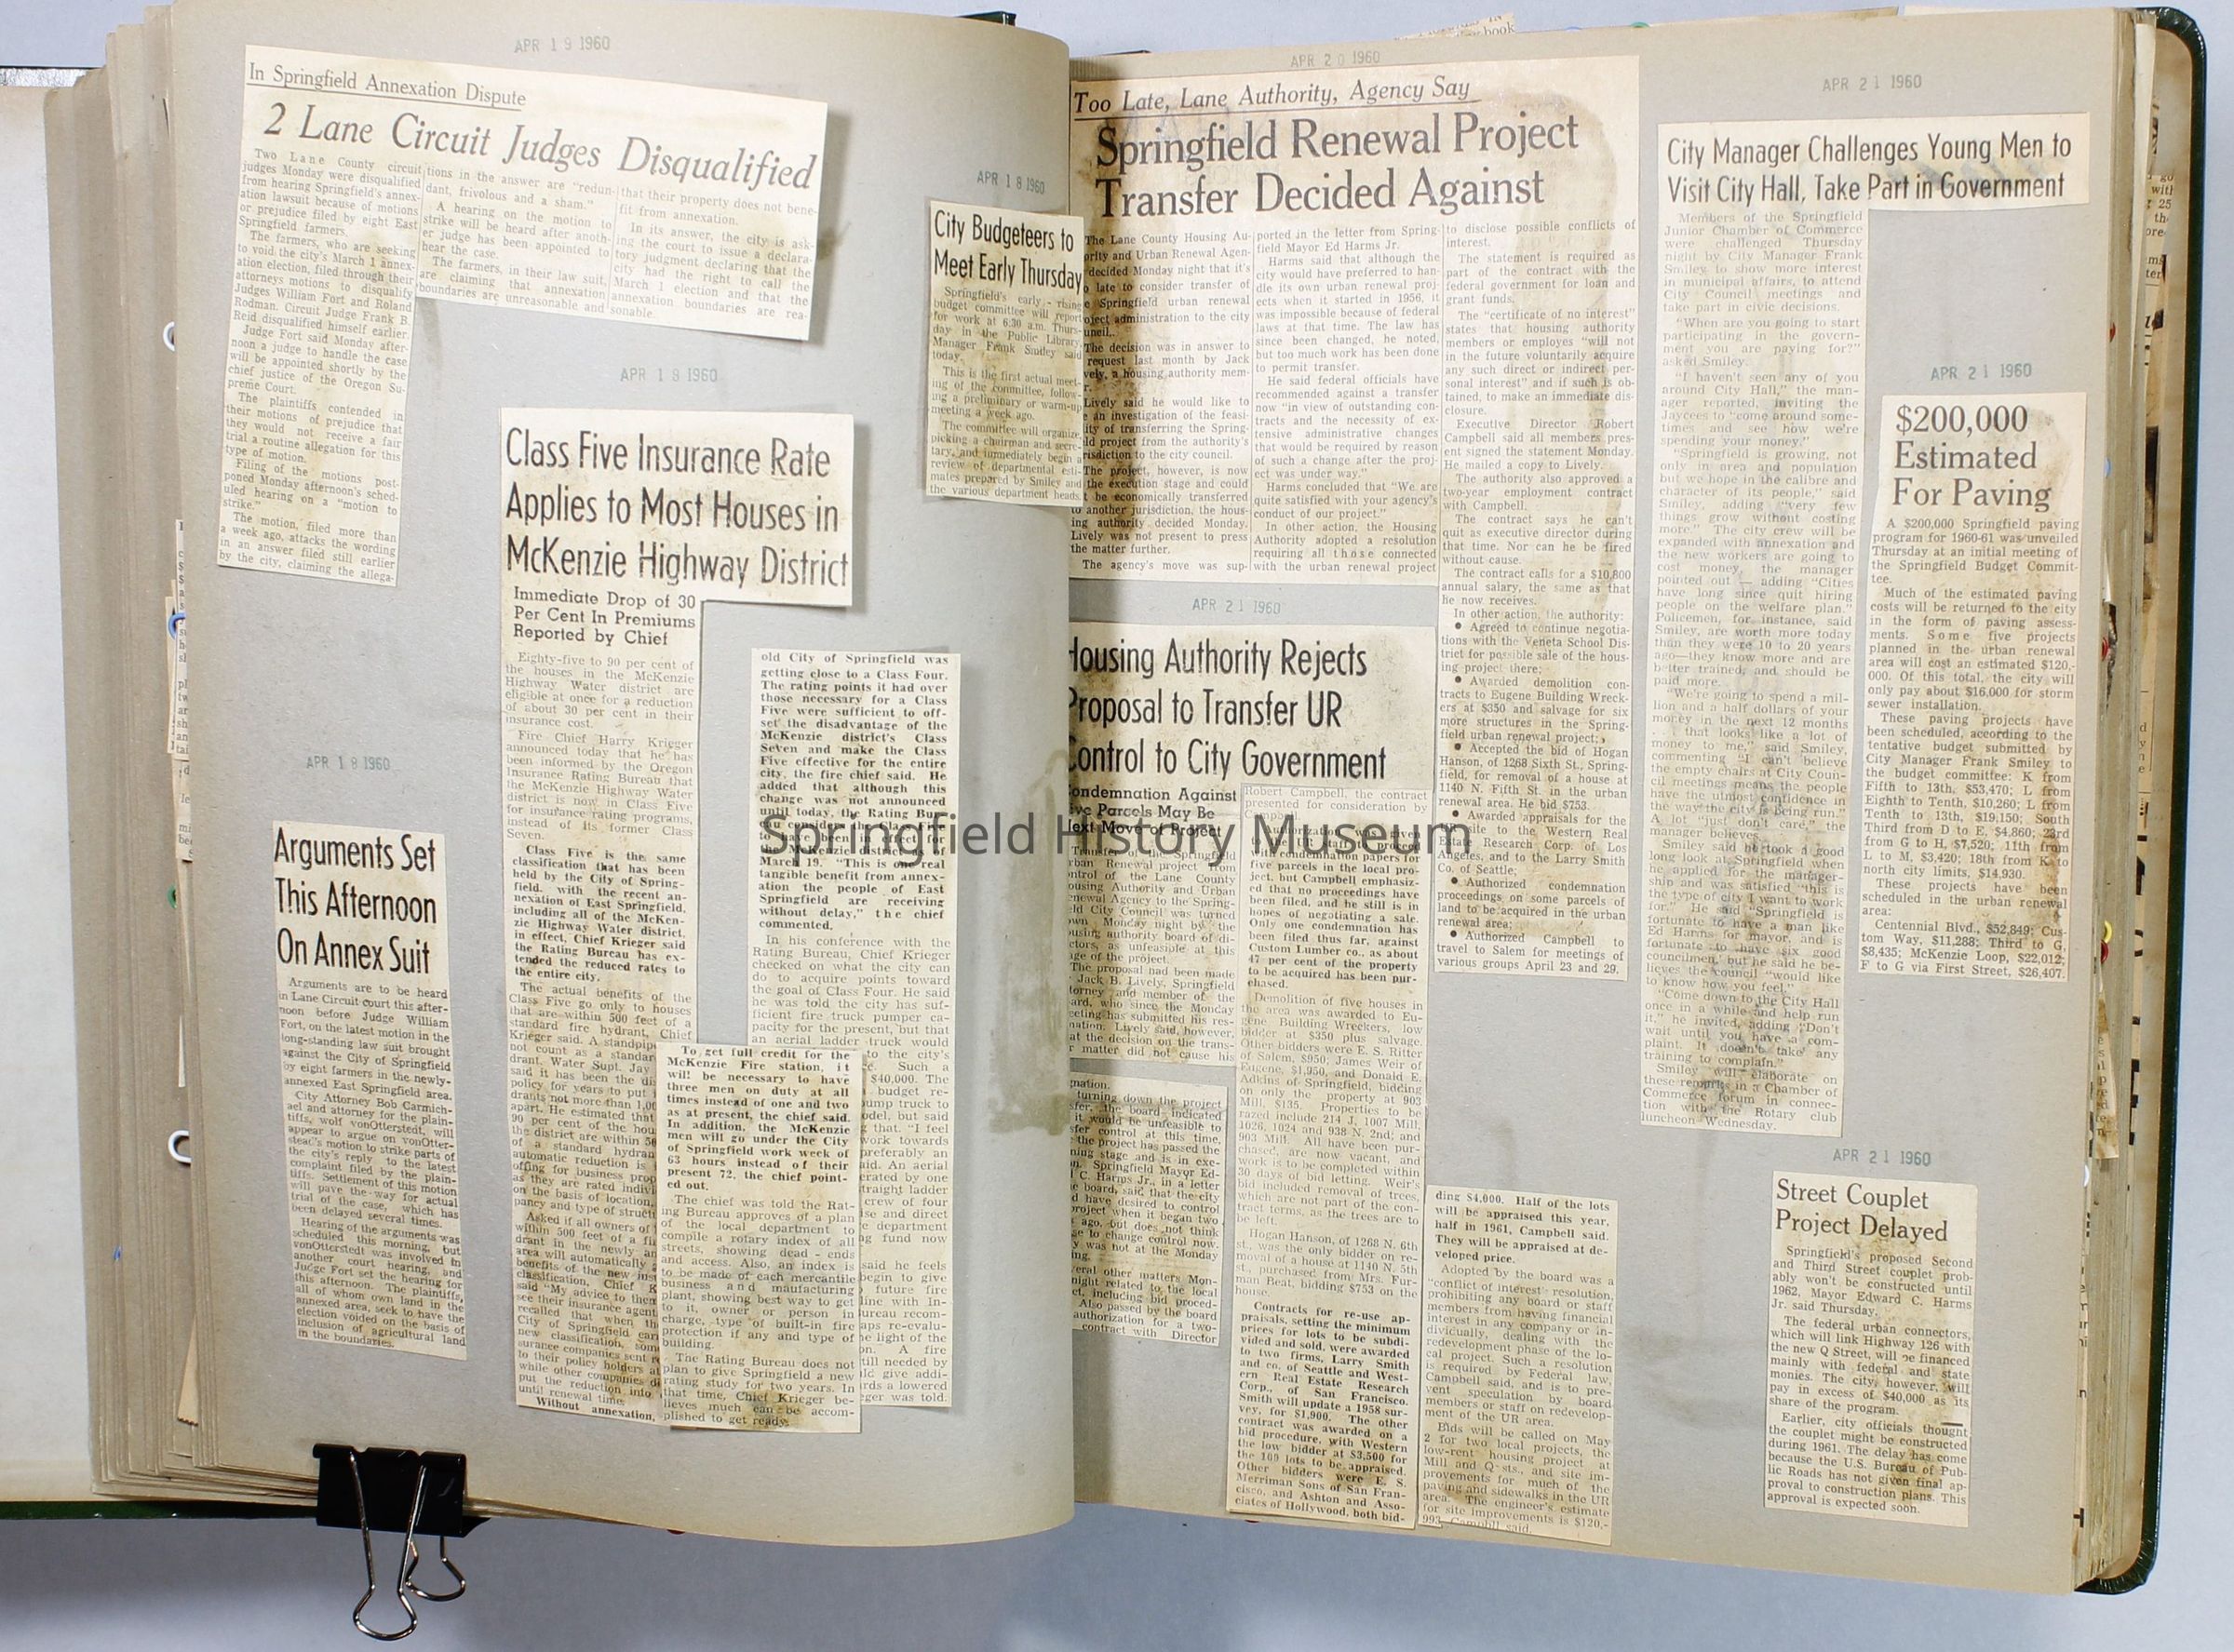 APR 19 1960
In Springfield Annexation Dispute
2 Lane Circuit Judges Disqualified
Two Lane County circuit
judges Monday were disqualified
from hearing Springfield's annex-
ation lawsuit because of motions
or prejudice filed by eight East
Springfield farmers.
The farmers, who are seeking
to void the city's March 1 annex-
ation election, filed through their
attorneys motions to disqualify
Judges William Fort and Roland
Rodman. Circuit Judge Frank B.
Reid disqualified himself earlier.
Judge Fort said Monday after-
noon a judge to handle the case
will be appointed shortly by the
chief justice of the Oregon Su-
preme Court.
The plaintiffs contended in
their motions of prejudice that
they would not receive a fair
trial a routine allegation for this
type of motion.
Filing of the motions post-
poned Monday afternoon's sched-
uled hearing on a "motion to
strike."
The motion, filed more than
a week ago, attacks the wording
in an answer filed still earlier
by the city, claiming the allega-
tions in the answer are "redun-
dant, frivolous and a sham."
A hearing on the motion to
strike will be heard after anoth-
er judge has been appointed to
hear the case.
The farmers, in their law suit,
are claiming that annexation
boundaries are unreasonable and
that their property does not bene-
fit from annexation.
In its answer, the city is ask-
ing the court to issue a declara-
tory judgment declaring that the
city had the right to call the
March 1 election and that the
annexation boundaries are rea-
sonable.
APR 18 1960
Class Five Insurance Rate
Applies to Most Houses in
McKenzie Highway District
Immediate Drop of 30
Per Cent In Premiums
Reported by Chief
Eighty-five to 90 per cent of
the houses in the McKenzie
Highway Water district are
eligible at once for a reduction
of about 30 per cent in their
insurance cost.
Fire Chief Harry Krieger
announced today that he has
been informed by the Oregon
Insurance Rating Bureau that
the McKenzie Highway Water
district is now in Class Five
for insurance rating programs,
instead of its former Class
Seven.
Class Five is the same
classification that has been
held by the City of Spring-
field, with the recent an-
nexation of East Springfield,
including all of the McKen-
zie Highway Water district,
in effect, Chief Krieger said
the Rating Bureau has ex-
tended the reduced rates to
the entire city.
The actual benefits of the
Class Five go only to houses
that are within 500 feet of a
standard fire hydrant, Chief
Krieger said. A standpipe
not count as a standar
drant, Water Supt. Jay
said it has been the di
policy for years to put
drants not more than 1,00
apart. He estimated that
90 per cent of the hou
the district are within 50
of a standard hydran
automatic reduction is
offing for business prop
as they are rated indivi
on the basis of location,
pancy and type of structi
Asked if all owners of
within 500 feet of a fi
drant in the newly an
area will automatically
benefits of the new ins
classification, Chief K
said "My advice to them
see their insurance agent
recalled that when th
City of Springfield earn
new classification, som
surance companies sent r
to their policy holders a
while other companies di
put the reduction into
until renewal time.
Without annexation,
old City of Springfield was
getting close to a Class Four.
The rating points it had over
those necessary for a Class
Five were sufficient to off-
set the disadvantage of the
McKenzie district's Class
Seven and make the Class
Five effective for the entire
city, the fire chief said. He
added that although this
change was not announced
until today, the Rating Bur
March 19. "This is one real
tangible benefit from annex-
ation the people of East
Springfield are receiving
without delay," the chief
commented.
In his conference with the
Rating Bureau, Chief Krieger
checked on what the city can
do to acquire points toward
the goal of Class Four. He said
he was told the city has suf-
ficient fire truck pumper ca-
pacity for the present, but that
an aerial ladder truck would
to the city's
Such a
$40,000. The
budget re-
ump truck to
odel, but said
g that. "I feel
work towards
preferably an
aid. An aerial
erated by one
traight ladder
crew of four
se and direct
e department
g fund now
said he feels
begin to give
future fire
line with In-
ureau recom-
aps re-evalu-
he light of the
on. A fire
till needed by
ld give addi-
rds a lowered
eger was told.
To get full credit for the
McKenzie Fire station, it
will be necessary to have
three men on duty at all
times instead of one and two
as at present, the chief said.
In addition, the McKenzie
men will go under the City
of Springfield work week of
63 hours instead of their
present 72, the chief point-
ed out.
The chief was told the Rat-
ing Bureau approves of a plan
of the local department to
compile a rotary index of all
streets, showing dead - ends
and access. Also, an index is
to be made of each mercantile
business and maufacturing
plant, showing best way to get
to it, owner or person in
charge, type of built-in fire
protection if any and type of
building.
The Rating Bureau does not
plan to give Springfield a new
rating study for two years. In
that time, Chief Krieger be-
lieves much can be accom-
plished to get ready.
APR 18 1960
Arguments Set
This Afternoon
On Annex Suit
Arguments are to be heard
in Lane Circuit court this after-
noon before Judge William
Fort, on the latest motion in the
long-standing law suit brought
against the City of Springfield
by eight farmers in the newly-
annexed East Springfield area.
City Attorney Bob Carmich-
ael and attorney for the plain-
tiffs, wolf vonOtterstedt, will
appear to argue on vonOtter-
stead's motion to strike parts of
the city's reply to the latest
complaint filed by the plain-
tiffs. Settlement of this motion
will pave the way for actual
trial of the case, which has
been delayed several times.
Hearing of the arguments was
scheduled this morning, but
vonOtterstedt was involved in
another court hearing, and
Judge Fort set the hearing for
this afternoon. The plaintiffs,
all of whom own land in the
annexed area, seek to have the
election voided on the basis of
inclusion of agricultural land
in the boundaries.
APR 18 1960
City Budgeteers to
Meet Early Thursday
Springfield's early - rising
budget committee will report
for work at 6:30 a.m. Thurs-
day in the Public Library,
Manager Frank Smiley said
today.
This is the first actual meet-
ing of the committee, follow-
ing a preliminary or warm-up
meeting a week ago.
The committee will organize,
picking a chairman and secre-
tary, and immediately begin a
review of departmental esti-
mates prepared by Smiley and
the various department heads.
APR 20 1960
Too Late, Lane Authority, Agency Say
Springfield Renewal Project
Transfer Decided Against
The Lane County Housing Au-
ority and Urban Renewal Agen-
decided Monday night that it's
late to consider transfer of
e Springfield urban renewal
oject administration to the city
uncil.
The decision was in answer to
request last month by Jack
vely, a housing authority mem-
r.
Lively said he would like to
e an investigation of the feasi-
ity of transferring the Spring-
ld project from the authority's
risdiction to the city council.
The project, however, is now
the execution stage and could
t be economically transferred
to another jurisdiction, the hous-
ing authority decided Monday.
Lively was not present to press
the matter further.
The agency's move was sup-
ported in the letter from Spring-
field Mayor Ed Harms Jr.
Harms said that although the
city would have preferred to han-
dle its own urban renewal proj-
ects when it started in 1956, it
was impossible because of federal
laws at that time. The law has
since been changed, he noted,
but too much work has been done
to permit transfer.
He said federal officials have
recommended against a transfer
now "in view of outstanding con-
tracts and the necessity of ex-
tensive administrative changes
that would be required by reason
of such a change after the proj-
ect was under way."
Harms concluded that "We are
quite satisfied with your agency's
conduct of our project."
In other action, the Housing
Authority adopted a resolution
requiring all those connected
with the urban renewal project
to disclose possible conflicts of
interest.
The statement is required as
part of the contract with the
federal government for loan and
grant funds.
The "certificate of no interest"
states that housing authority
members or employes "will not
in the future voluntarily acquire
any such direct or indirect per-
sonal interest" and if such is ob-
tained, to make an immediate dis-
closure.
Executive Director Robert
Campbell said all members pres-
ent signed the statement Monday.
He mailed a copy to Lively.
The authority also approved a
two-year employment contract
with Campbell.
The contract says he can't
quit as executive director during
that time. Nor can he be fired
without cause.
The contract calls for a $10,800
annual salary, the same as that
he now receives.
In other action, the authority:
• Agreed to continue negotia-
tions with the Veneta School Dis-
trict for possible sale of the hous-
ing project there;
• Awarded demolition con-
tracts to Eugene Building Wreck-
ers at $350 and salvage for six
more structures in the Spring-
field urban renewal project;
• Accepted the bid of Hogan
Hanson, of 1268 Sixth St., Spring-
field, for removal of a house at
1140 N. Fifth St. in the urban
renewal area. He bid $753.
• Awarded appraisals for the
site to the Western Real
Estate Research Corp. of Los
Angeles, and to the Larry Smith
Co. of Seattle;
• Authorized condemnation
proceedings on some parcels of
land to be acquired in the urban
renewal area;
• Authorized Campbell to
travel to Salem for meetings of
various groups April 23 and 29.
APR 21 1960
Housing Authority Rejects
Proposal to Transfer UR
Control to City Government
Condemnation Against
Five Parcels May Be
Next Move of Project
Springfield
rban Renewal project from
ntrol of the Lane County
ousing Authority and Urban
enewal Agency to the Spring-
eld City Council was turned
own Monday night by the
ousing authority board of di-
ctors, as unfeasible at this
age of the project.
The proposal had been made
Jack B. Lively, Springfield
torney and member of the
ard, who since the Monday
eeting has submitted his res-
nation. Lively said, however,
at the decision on the trans-
r matter did not cause his
nation.
turning down the project
sfer, the board indicated
it would be unfeasible to
sfer control at this time,
the project has passed the
ning stage and is in exe-
n. Springfield Mayor Ed-
C. Harms Jr., in a letter
e board, said that the city
d have desired to control
project when it began two
ago, but does not think
se to change control now.
y was not at the Monday
ing.
veral other matters Mon-
night related to the local
ct, including bid proced-
Also passed by the board
authorization for a two-
contract with Director
Robert Campbell, the contract
presented for consideration by
with condemnation papers for
five parcels in the local pro-
ject, but Campbell emphasiz-
ed that no proceedings have
been filed, and he still is in
hopes of negotiating a sale.
Only one condemnation has
been filed thus far, against
Custom Lumber co., as about
47 per cent of the property
to be acquired has been pur-
chased.
Demolition of five houses in
the area was awarded to Eu-
gene Building Wreckers, low
bidder at $350 plus salvage.
Other bidders were E. S. Ritter
of Salem, $950, James Weir of
Eugene, $1,950, and Donald E.
Adkins of Springfield, bidding
on only the property at 903
Mill, $135. Properties to be
razed include 214 J, 1007 Mill,
1026, 1024 and 938 N. 2nd; and
903 Mill. All have been pur-
chased, are now vacant, and
work is to be completed within
30 days of bid letting. Weir's
bid included removal of trees,
which are not part of the con-
tract terms, as the trees are to
be left.
Hogan Hanson, of 1268 N. 6th
st., was the only bidder on re-
moval of a house at 1140 N. 5th
st., purchased from Mrs. Fur-
man Beat, bidding $753 on the
house.
Contracts for re-use ap-
praisals, setting the minimum
prices for lots to be subdi-
vided and sold, were awarded
to two firms, Larry Smith
and co. of Seattle and West-
ern Real Estate Research
Corp., of San Francisco.
Smith will update a 1958 sur-
vey, for $1,900. The other
contract was awarded on a
bid procedure, with Western
the low bidder at $3,500 for
the 169 lots to be appraised.
Other bidders were E. S.
Merriman Sons of San Fran-
cisco, and Ashton and Asso-
ciates of Hollywood, both bid-
ding $4,000. Half of the lots
will be appraised this year,
half in 1961, Campbell said.
They will be appraised at de-
veloped price.
Adopted by the board was a
"conflict of interest" resolution,
prohibiting any board or staff
members from having financial
interest in any company or in-
dividually, dealing with the
redevelopment phase of the lo-
cal project. Such a resolution
is required by Federal law,
Campbell said, and is to pre-
vent speculation by board
members or staff on redevelop-
ment of the UR area.
Bids will be called on May
2 for two local projects, the
low-rent housing project at
Mill and Q sts., and site im-
provements for much of the
paving and sidewalks in the UR
area. The engineer's estimate
for site improvements is $120,-
993, Campbell said.
APR 21 1960
City Manager Challenges Young Men to
Visit City Hall, Take Part in Government
Members of the Springfield
Junior Chamber of Commerce
were challenged Thursday
night by City Manager Frank
Smiley to show more interest
in municipal affairs, to attend
City Council meetings and
take part in civic decisions.
"When are you going to start
participating in the govern-
ment you are paying for?"
asked Smiley.
"I haven't seen any of you
around City Hall," the man-
ager reported, inviting the
Jaycees to "come around some-
times and see how we're
spending your money."
"Springfield is growing, not
only in area and population
but we hope in the calibre and
character of its people," said
Smiley, adding "very few
things grow without costing
more." The city crew will be
expanded with annexation and
the new workers are going to
cost money, the manager
pointed out — adding "Cities
have long since quit hiring
people on the welfare plan."
Policemen, for instance, said
Smiley, are worth more today
than they were 10 to 20 years
ago—they know more and are
better trained, and should be
paid more.
"We're going to spend a mil-
lion and a half dollars of your
money in the next 12 months
. . . that looks like a lot of
money to me," said Smiley,
commenting "I can't believe
the empty chairs at City Coun-
cil meetings means the people
have the utmost confidence in
the way the city is being run."
A lot "just don't care," the
manager believes.
Smiley said he took a good
long look at Springfield when
he applied for the manager-
ship and was satisfied "this is
the type of city I want to work
for." He said "Springfield is
fortunate to have a man like
Ed Harms for mayor, and is
fortunate to have six good
councilmen," but he said he be-
lieves the council "would like
to know how you feel."
"Come down to the City Hall
once in a while and help run
it," he invited, adding "Don't
wait until you have a com-
plaint. It doesn't take any
training to complain."
Smiley will elaborate on
these remarks in a Chamber of
Commerce forum in connec-
tion with the Rotary club
luncheon Wednesday.
APR 21 1960
$200,000
Estimated
For Paving
A $200,000 Springfield paving
program for 1960-61 was unveiled
Thursday at an initial meeting of
the Springfield Budget Commit-
tee.
Much of the estimated paving
costs will be returned to the city
in the form of paving assess-
ments. Some five projects
planned in the urban renewal
area will cost an estimated $120,-
000. Of this total, the city will
only pay about $16,000 for storm
sewer installation.
These paving projects have
been scheduled, according to the
tentative budget submitted by
City Manager Frank Smiley to
the budget committee: K from
Fifth to 13th, $53,470; L from
Eighth to Tenth, $10,260; L from
Tenth to 13th, $19,150; South
Third from D to E, $4,860; 23rd
from G to H, $7,520; 11th from
L to M, $3,420; 18th from K to
north city limits, $14,930.
These projects have been
scheduled in the urban renewal
area:
Centennial Blvd., $52,849; Cus-
tom Way, $11,288; Third to G,
$8,435; McKenzie Loop, $22,012;
F to G via First Street, $26,407.
APR 21 1960
Street Couplet
Project Delayed
Springfield's proposed Second
and Third Street couplet prob-
ably won't be constructed until
1962, Mayor Edward C. Harms
Jr. said Thursday.
The federal urban connectors,
which will link Highway 126 with
the new Q Street, will be financed
mainly with federal and state
monies. The city, however, will
pay in excess of $40,000 as its
share of the program.
Earlier, city officials thought
the couplet might be constructed
during 1961. The delay has come
because the U.S. Bureau of Pub-
lic Roads has not given final ap-
proval to construction plans. This
approval is expected soon.
Springfield History Museum